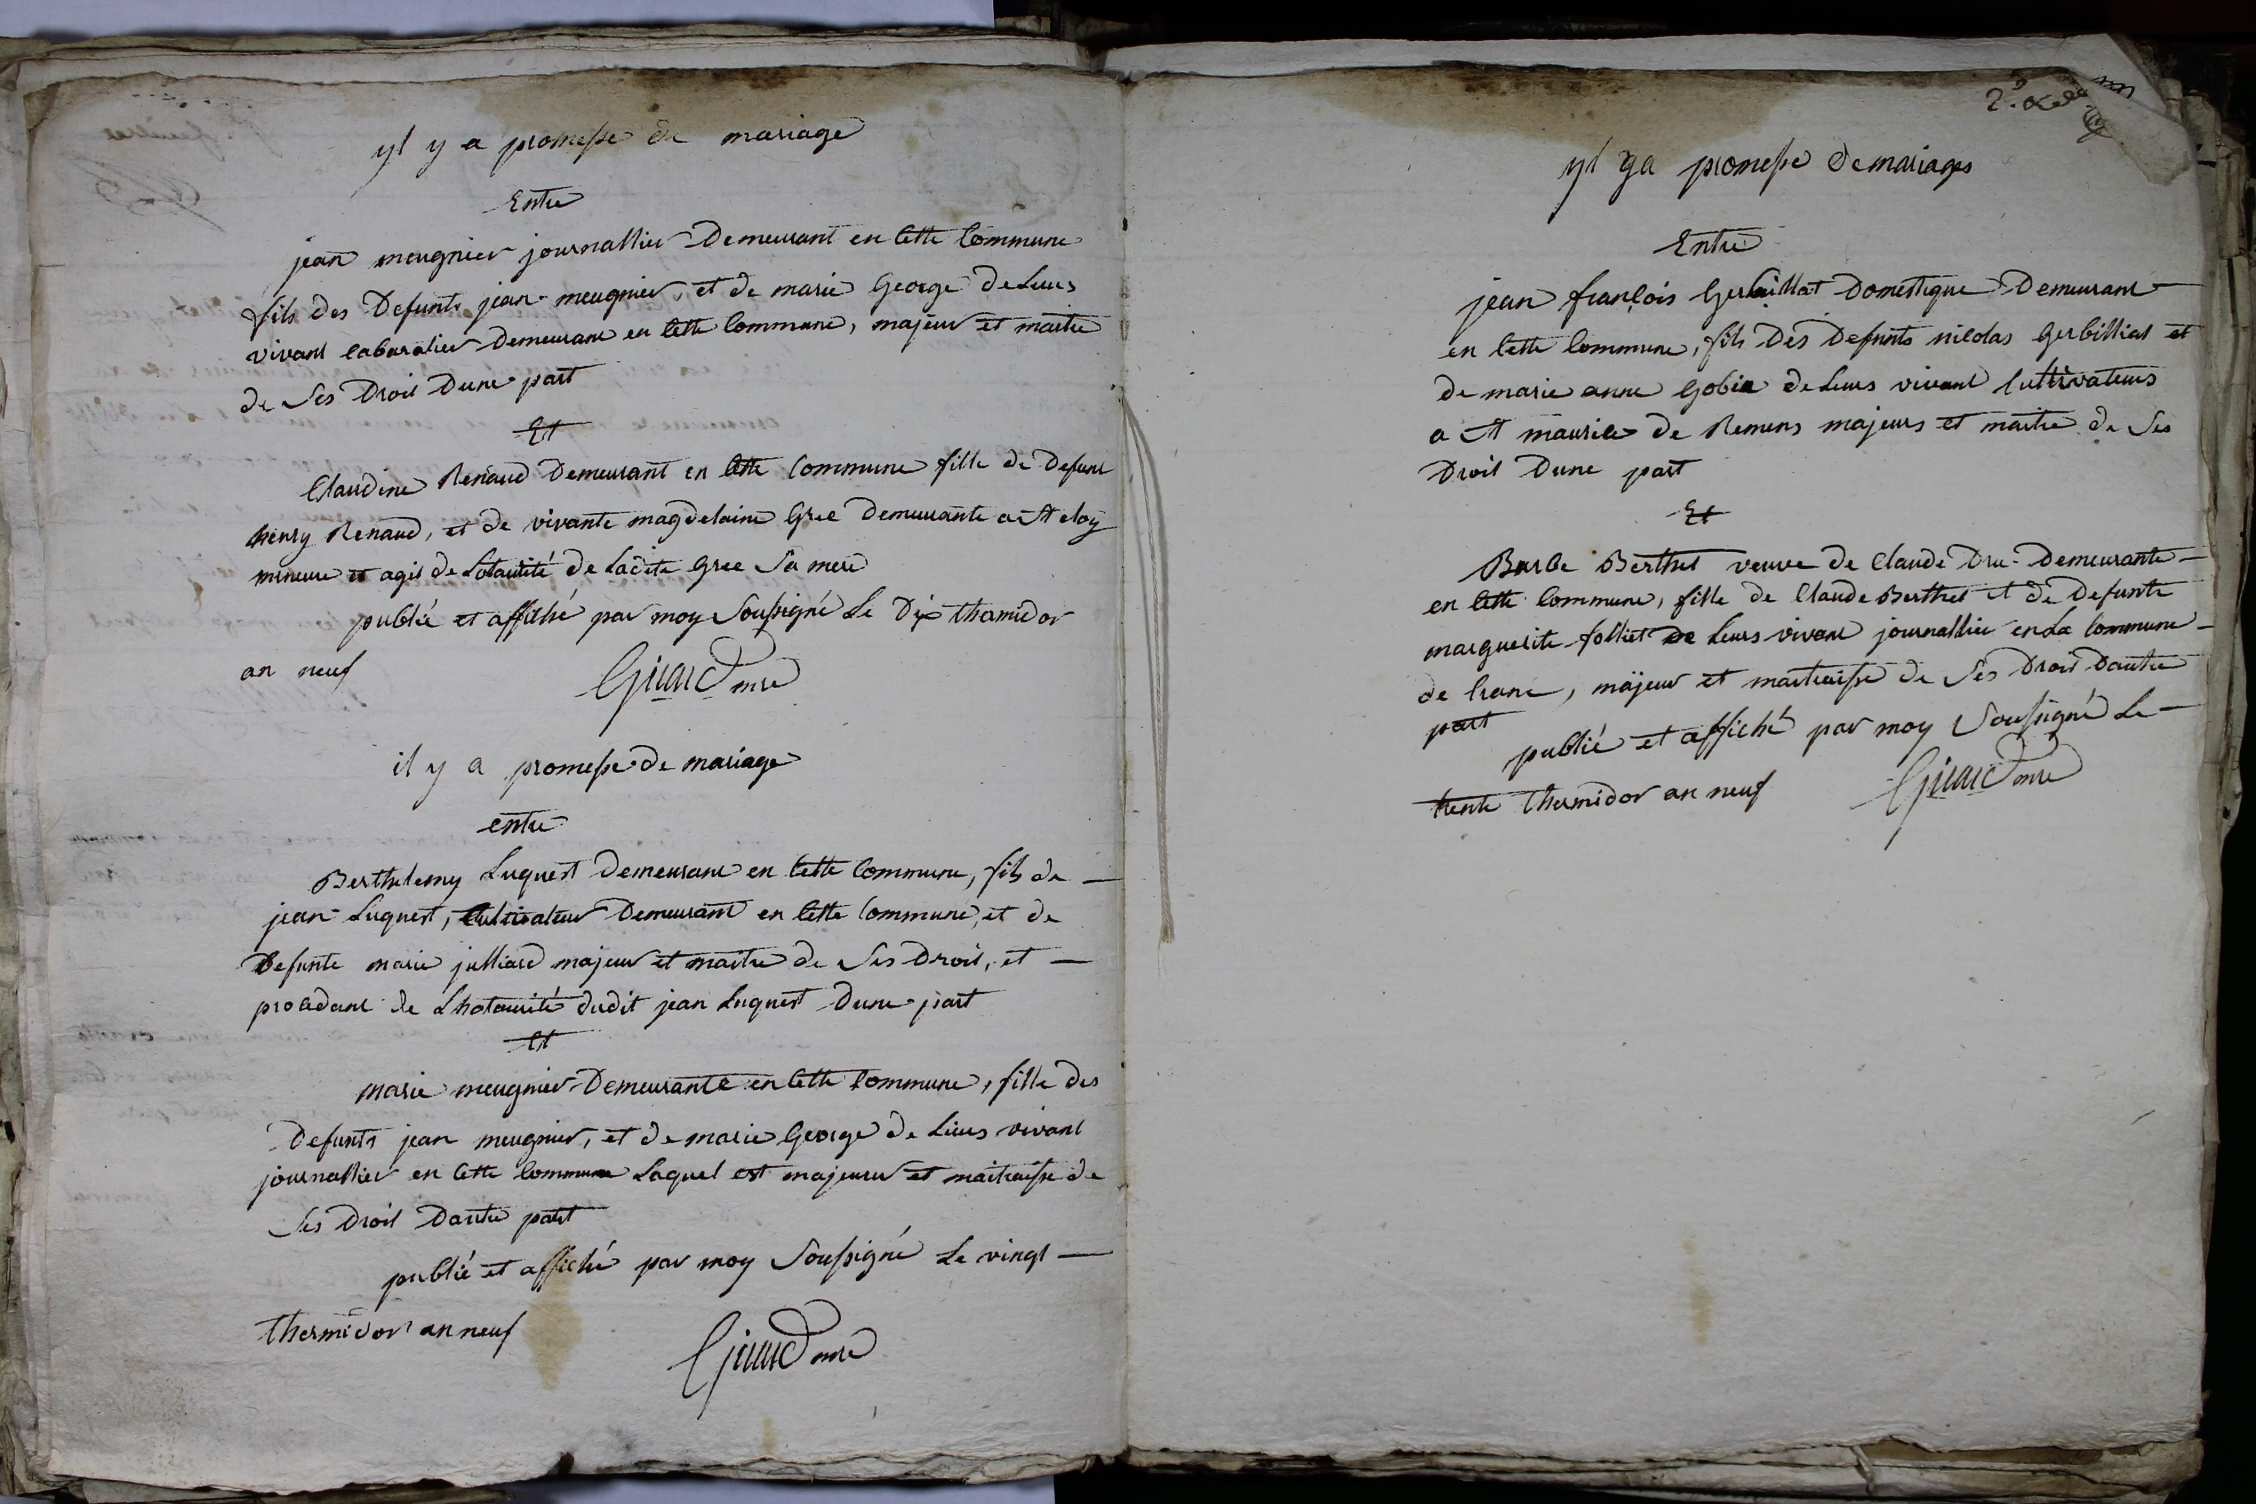 yl y a promesse de mariage
Entre
jean meugnier journallier Demeurant en Cette Commune
fils des Defunts jean meugnier, et de marie George de Leurs
vivant cabaratier Demeurant en Cette Commune, majeur et maitre
de Ses Droit Dune part
Et
Claudine Renaud Demeurant en Cette Commune fille de Defunt
henry Renaud, et de vivante magdelaine Gree Demeurante a St eloy
mineure et agis de Lotaurité de Ladite Gree Sa mere
publié et affiché par moy Soussigné Le Dix thamidor
an neuf
Girard mre
il y a promesse de mariage
entre
Berthelemy Luquest Demeurant en Cette Commune, fils de
jean Luquest, Cultivateur Demeurant en Cette Commune, et de
Defunte marie julliard majeur et maitre de Ses Droit, et
procedant de Lhotaurité dudit jean Luquest Dune part
Et
marie meugnier Demeurante en Cette Commune, fille des
Defunts jean meugnier, et de marie George de Leurs vivant
journallier en Cette Commune Laquel est majeure et maitraisse de
Ses Droit Dautre part
publié et affiché par moy Soussigné Le vingt
Thermidor an neuf
Girard mre
yl ya promesse de mariages
Entre
jean françois Gerbillat Domestique Demeurant
en Cette Commune, fils Des Defunts nicolas Gerbilliat et
de marie anne Gobin de Leurs vivant Cultivateurs
a St maurice de Remens majeurs et maitre de Ses
Droit Dune part
Et
Barbe Berthet veuve de Claude Dru Demeurante
en Cette Commune, fille de Claude Berthet et de Defunte
marguerite folliet de Leurs vivant journallier en La Commune
de Crane, majeur et maitraisse de Ses Droit Dautre
part
publié et affiché par moy Soussigné Le
trente Thermidor an neuf
Girard mre